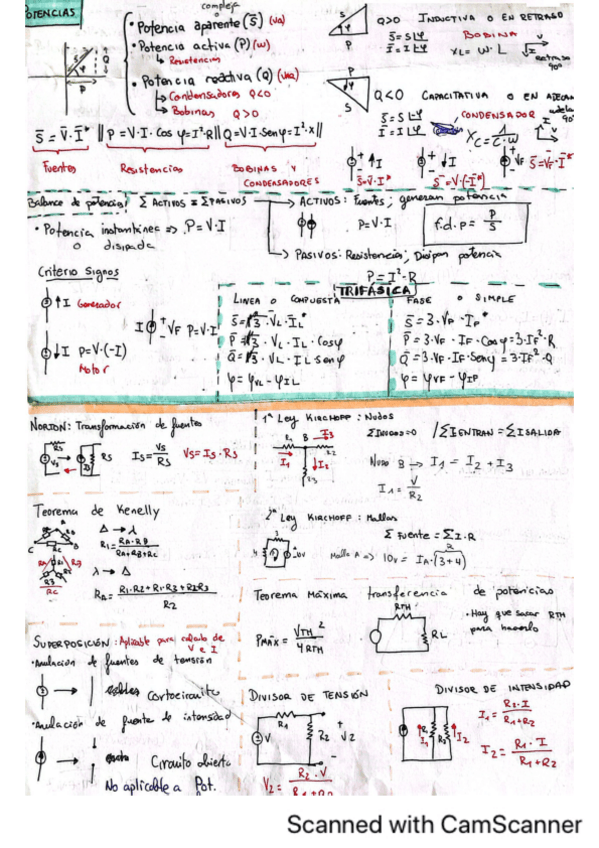 POTENCIAS
compleja
• Potencia aparente (S̅) (va)
• Potencia activa (P) (w)
↳ Resistencias
• Potencia reactiva (Q) (var)
↳ Condensadores Q<0
↳ Bobinas Q>0
S̅ = V̅·I̅* || P = V·I·Cos φ = I²·R || Q = V·I·Sen φ = I²·X ||
Fuentes Resistencias BOBINAS Y CONDENSADORES
Q>0 INDUCTIVA O EN RETRASO
S̅ = S∠φ BOBINA
XL = W·L
90°
Q<0 CAPACITATIVA O EN
CONDENSADOR
Xc = 1/C·W
S̅ = V·I* S̅ = V·(-I*) VF S̅ = VF·I*
Balance de potencias: Σ ACTIVOS = Σ PASIVOS
→ ACTIVOS: Fuentes; generan potencia
• Potencia instantánea => P = V·I
o disipada
P = V·I
f.d.p = P/S
→ PASIVOS: Resistencias; Disipan potencia
P = I²·R
Criterio Signos
↑I Generador
I VF P = V·I
↓I P = V·(-I)
Motor
TRIFÁSICA
LINEA O COMPUESTA
S̅ = √3·VL·IL*
P = √3·VL·IL·Cos φ
Q = √3·VL·IL Sen φ
φ = φVL - φIL
FASE O SIMPLE
S̅ = 3·VF·IF*
P = 3·VF·IF·Cos φ = 3·IF²·R
Q = 3·VF·IF·Sen φ = 3·IF²·Q
φ = φVF - φIF
NORTON: Transformación de fuentes
RS VS IS RS IS = VS/RS VS = IS·RS
1ª Ley KIRCHOFF: Nudos
R1 B I3
I1 I2 R2
Σ I NUDOS = 0 / Σ I ENTRAN = Σ I SALIDA
Nudo B → I1 = I2 + I3
I1 = V/R2
Teorema de Kenelly
Δ → λ
R1 = RA·RB/RA+RB+RC
λ → Δ
RA = R1·R2+R1·R3+R2R3/R2
2ª Ley KIRCHOFF: Mallas
Σ Fuente = Σ I·R
Malla A => 10v = IA·(3+4)
Teorema Máxima transferencia de potencias
PMAX = VTH²/4RTH
RTH RL
• Hay que sacar RTH
para hacerlo
SUPERPOSICIÓN: Aplicable para calculo de
V e I
• Anulación de fuentes de tensión
→ cortocircuito
• Anulación de fuente de intensidad
→ Circuito abierto
No aplicable a Pot.
DIVISOR DE TENSIÓN
R1 V R2 V2
V2 = R2·V/R1+R2
DIVISOR DE INTENSIDAD
I1 I2
I1 = R2·I/R1+R2
I2 = R1·I/R1+R2
Scanned with CamScanner